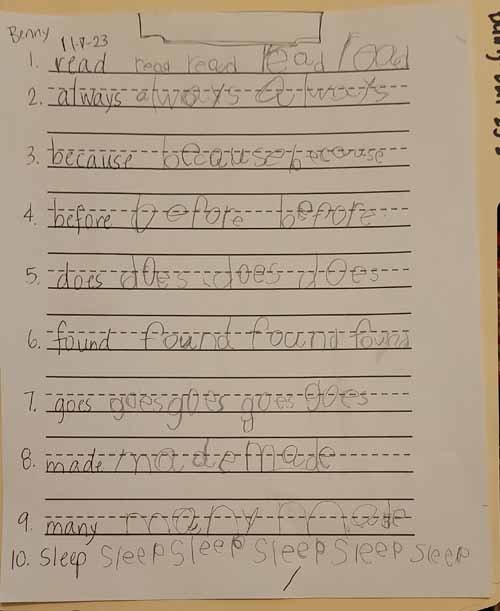 Benny
11-8-23
1. read read read read load
2. always always always
3. because because because
4. before before before
5. does does does does
6. found found found found
7. goes goes goes goes goes
8. made made made
9. many many made
10. Sleep Sleep Sleep Sleep Sleep Sleep